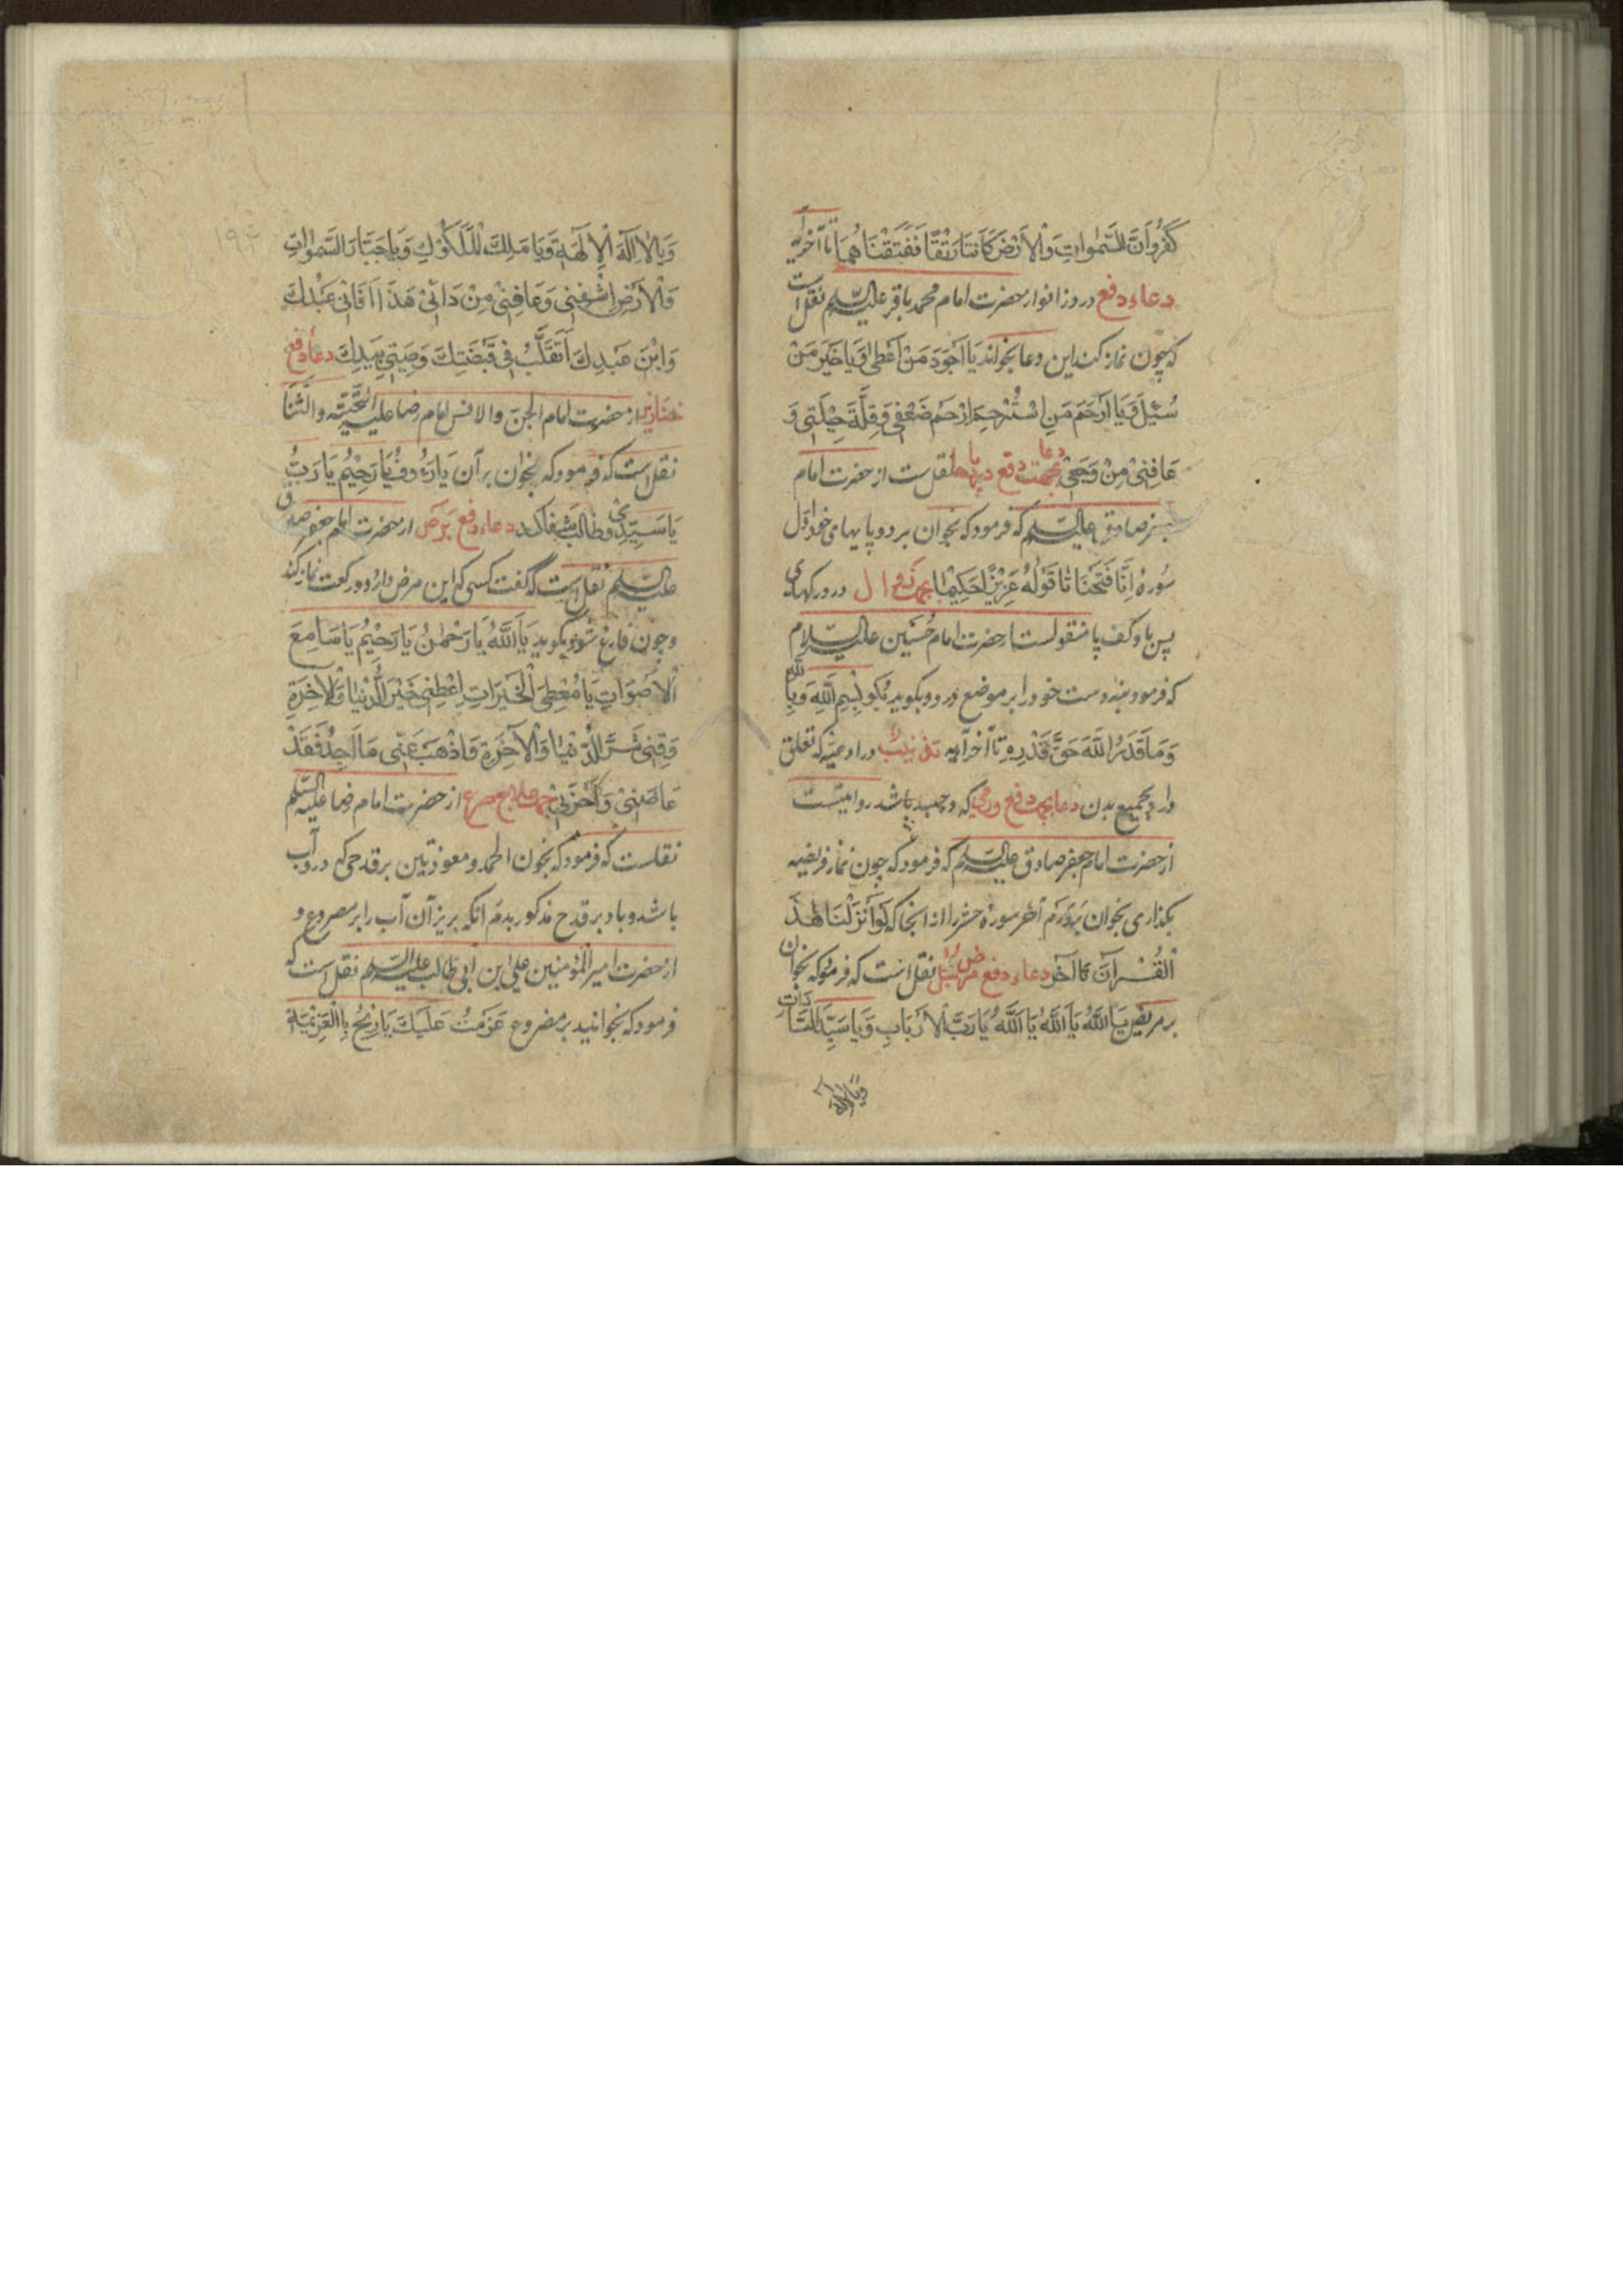 كَفَرُوا أَنَّ السَّمٰوَاتِ وَالْأَرْضَ كَانَتَا رَتْقًا فَفَتَقْنَاهُمَا تا آخر آیه
دعاء دفع درد زانو از حضرت امام محمد باقر علیه السلم نقل است
که چون نماز کند این دعا بخواند يَا أَجْوَدَ مَنْ أَعْطٰى وَيَا خَيْرَ مَنْ
سُئِلَ وَيَا أَرْحَمَ مَنِ اسْتُرْحِمَ ارْحَمْ ضَعْفِي وَقِلَّةَ حِيلَتِي وَ
عَافِنِي مِنْ وَجَعِي دعا بجهت دفع درد پاها نقل ست از حضرت امام
جعفر صادق علیه السلم که فرمود که بخوان بر دو پایهای خود اول
سُوره اِنَّا فَتَحْنَا تا قَوْلُهُ عَزِيزًا حَكِيمًا بجهت درد رکهای
پس پا و کف پا منقولست از حضرت امام حُسَین علیه السلام
که فرمود بنه دست خود را بر موضع درد و بگوید بگو بِسْمِ اللَّهِ وَبِاللَّهِ
وَمَا قَدَرُوا اللَّهَ حَقَّ قَدْرِهِ تا آخر آیه تذنیب در ادعیه که تعلق
دارد بجمیع بدن دعا بجهت دفع ورمی که در جسد باشد روایتست
از حضرت امام جعفر صادق علیه السلم که فرمود که چون نماز فریضه
بگذاری بخوان بر ورم آخر سوره حشر را از آنجا که لَوْ أَنْزَلْنَا هٰذَا
الْقُرْآنَ تا آخر دعاء دفع مرض سل نقل است که فرمود که بخوان
بر مریض يَا اللَّهُ يَا اللَّهُ يَا اللَّهُ يَا رَبَّ الْأَرْبَابِ وَيَا سَيِّدَ السَّادَاتِ
وَيَا إِلٰهَ
وَيَا إِلٰهَ الْاٰلِهَةِ وَيَا مَلِكَ الْمُلُوكِ وَيَا جَبَّارَ السَّمٰوَاتِ
وَالْأَرْضِ اشْفِنِي وَعَافِنِي مِنْ دَائِي هَذَا فَإِنِّي عَبْدُكَ
وَابْنُ عَبْدِكَ أَتَقَلَّبُ فِي قَبْضَتِكَ وَنَاصِيَتِي بِيَدِكَ دعاء دفع
خنازیر از حضرت امام الجن والانس امام رضا علیه التحیة والثنا
نقل ست که فرمود که بخوان بر آن يَا رَءُوفُ يَا رَحِيمُ يَا رَبِّ
يَا سَيِّدِي و طالب شفا کند دعاء دفع برص از حضرت امام جعفر صادق
علیه السلم نقل است که گفت کسی که این مرض دارد دو رکعت نماز کند
و چون فارغ شود بگوید يَا اللَّهُ يَا رَحْمٰنُ يَا رَحِيمُ يَا سَامِعَ
الْأَصْوَاتِ يَا مُعْطِيَ الْخَيْرَاتِ اعْطِنِي خَيْرَ الدُّنْيَا وَالْاٰخِرَةِ
وَقِنِي شَرَّ الدُّنْيَا وَالْآخِرَةِ وَاذْهَبْ عَنِّي مَا أَجِدُ فَقَدْ
غَاظَنِي وَأَحْزَنَنِي جهت علاج صرع از حضرت امام رضا علیه السلم
نقلست که فرمود که بخوان الحمد و معوذتین بر قدحی که در وی آب
باشد و باد بر قدح مذکور بدم آنکه بریز آن آب را بر مصروع و
از حضرت امیر المؤمنین علی ابن ابی طالب علیه السلم نقل است که
فرمود که بخوانید بر مصروع عَزَمْتُ عَلَيْكَ يَا رِيحُ بِالْعَزِيمَةِ